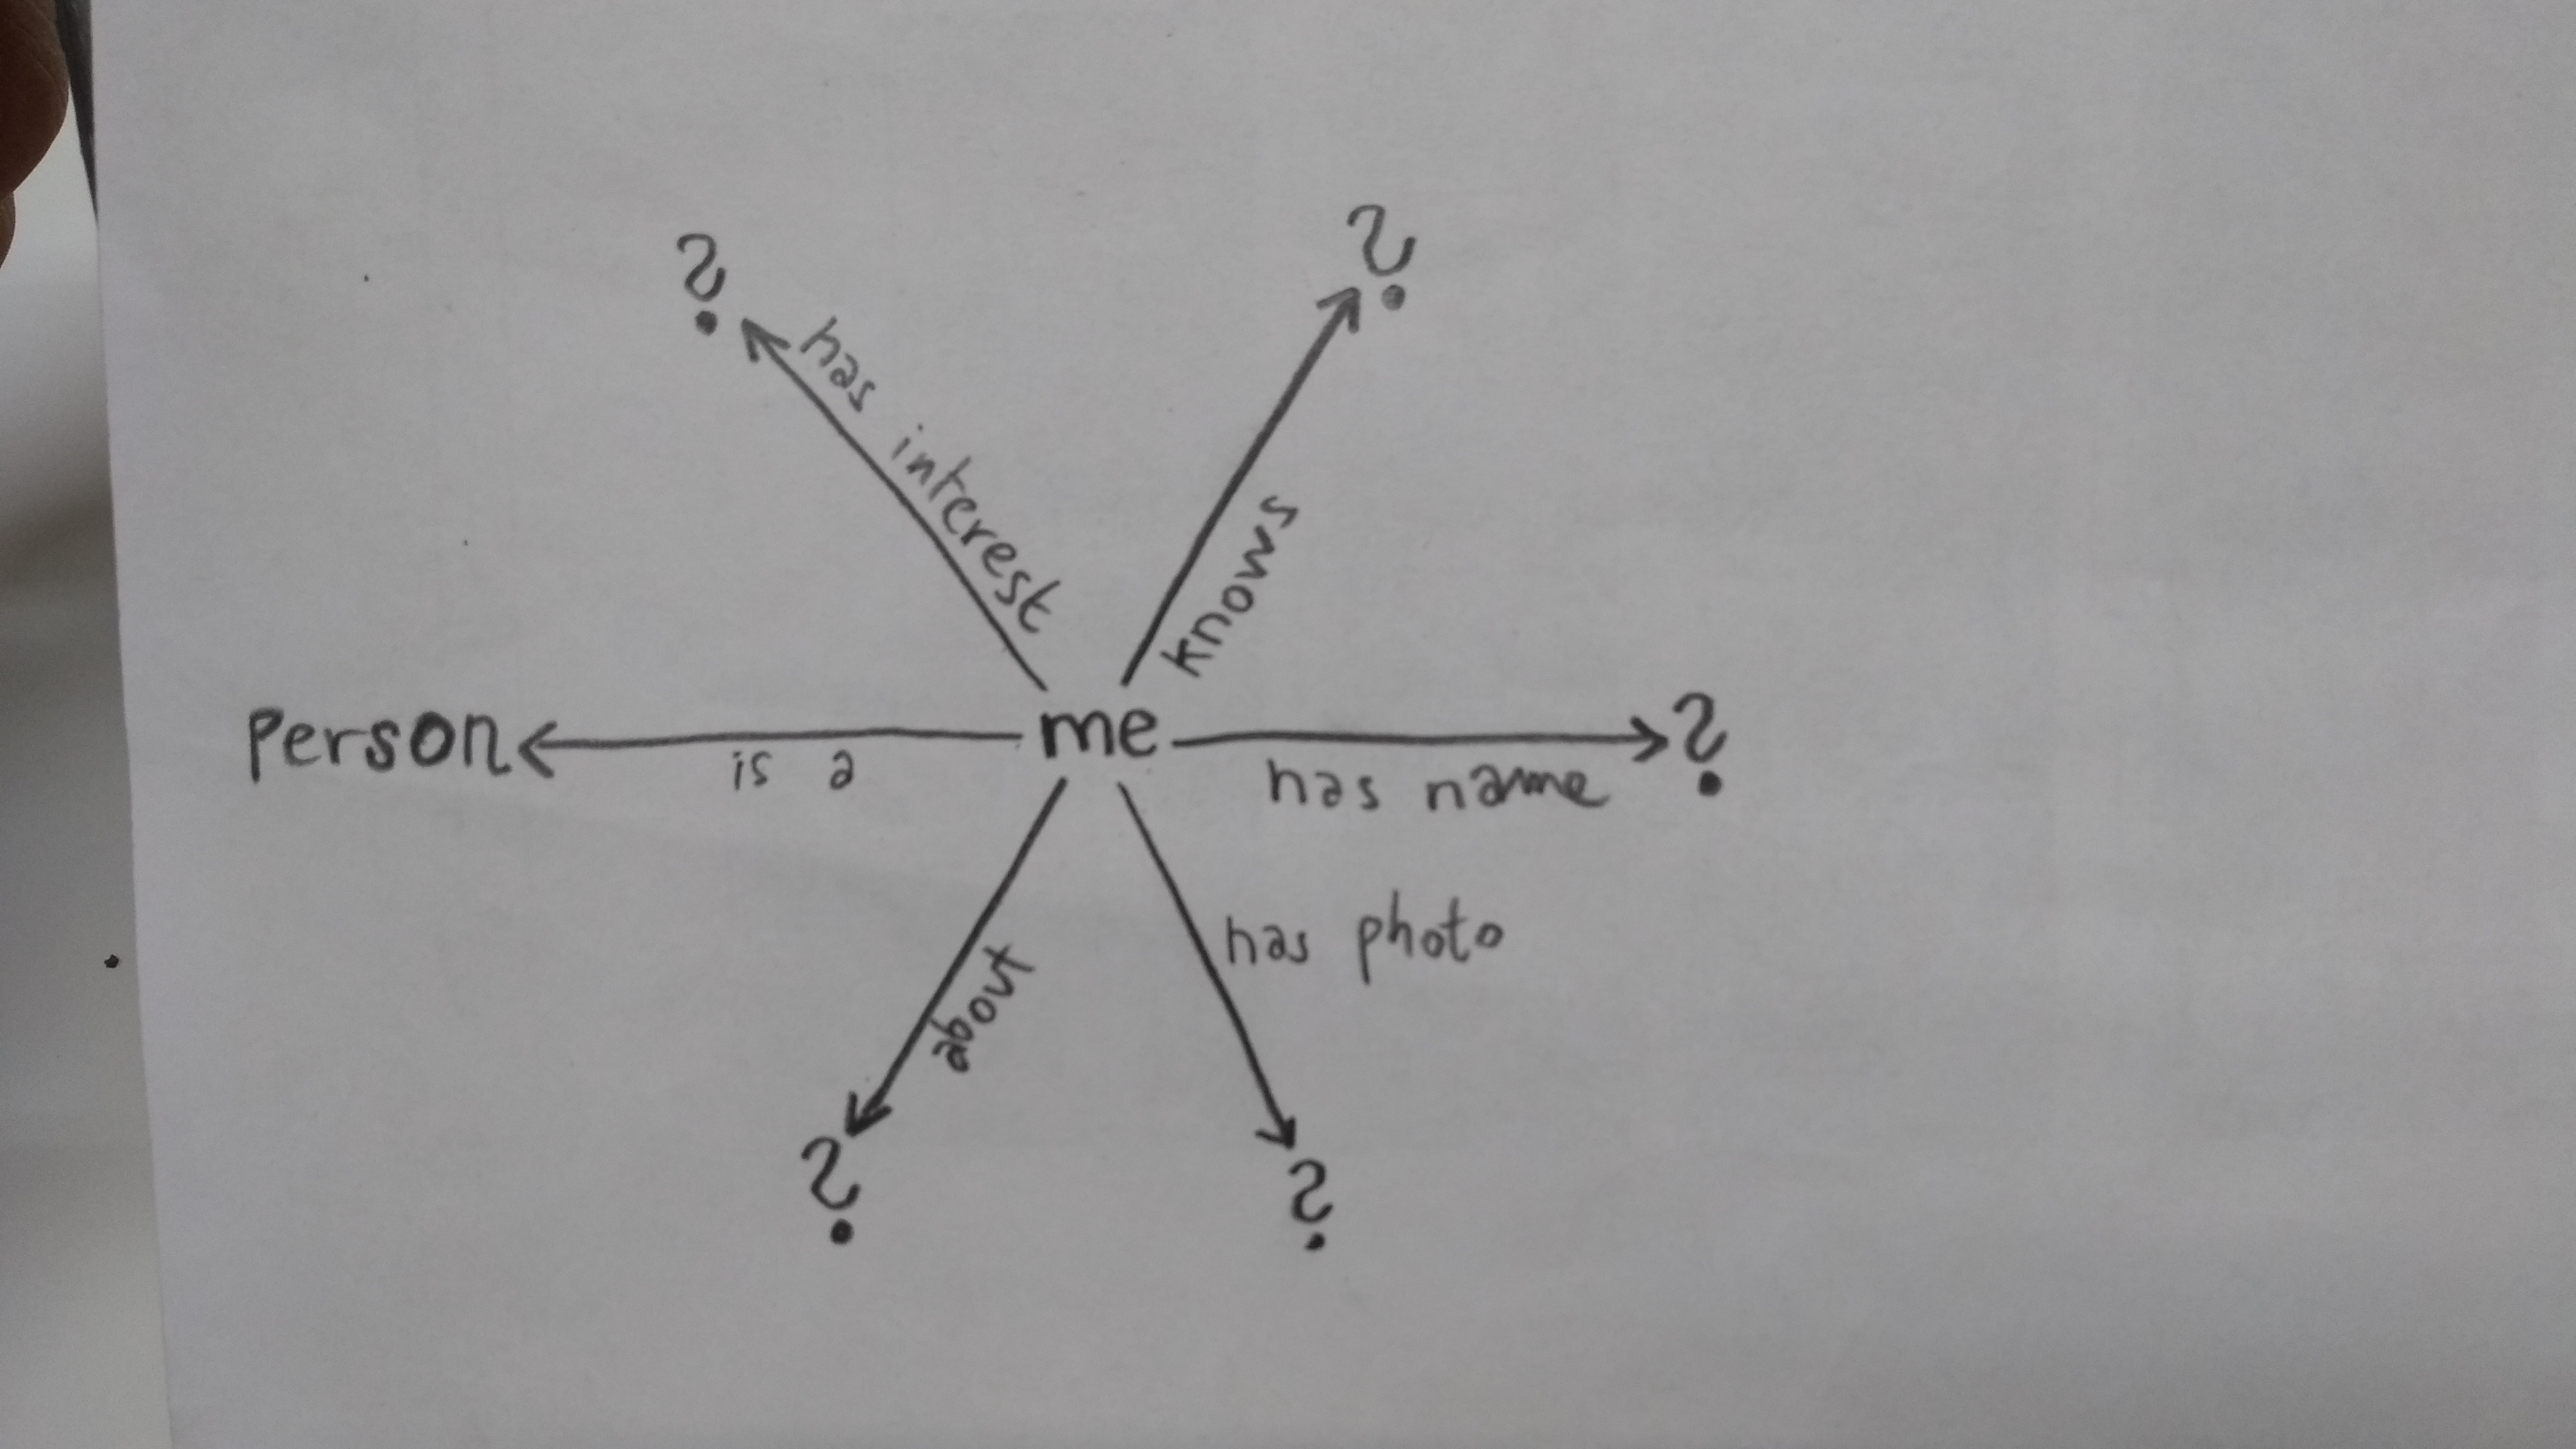 ?
?
has interest
knows
Person
is a
me
has name
?
about
has photo
?
?